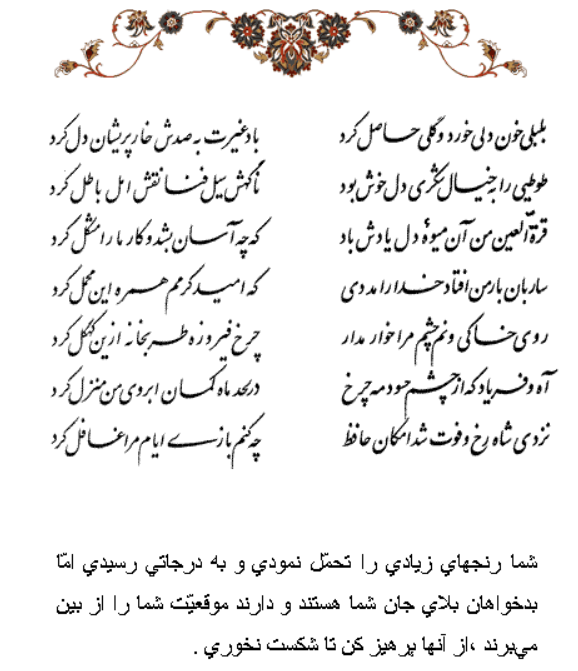 بلبلی خون دلی خورد و گلی حاصل کرد باد غیرت به صدش خار پریشان دل کرد
طوطیی را به خیال شکری دل خوش بود ناگهش سیل فنا نقش امل باطل کرد
قرة العین من آن میوهٔ دل یادش باد که چه آسان بشد و کار مرا مشکل کرد
ساربان بار من افتاد خدا را مددی که امید کرمم همره این محمل کرد
روی خاکی و نم چشم مرا خوار مدار چرخ فیروزه طربخانه ازین کهگل کرد
آه و فریاد که از چشم حسود مه چرخ در لحد ماه کمان ابروی من منزل کرد
نزدی شاه رخ و فوت شد امکان حافظ چه کنم بازی ایام مرا غافل کرد
شما رنجهاي زيادي را تحمّل نمودي و به درجاتي رسيدي امّا
بدخواهان بلاي جان شما هستند و دارند موقعيّت شما را از بين
مي‌برند ،از آنها پرهيز کن تا شکست نخوري .